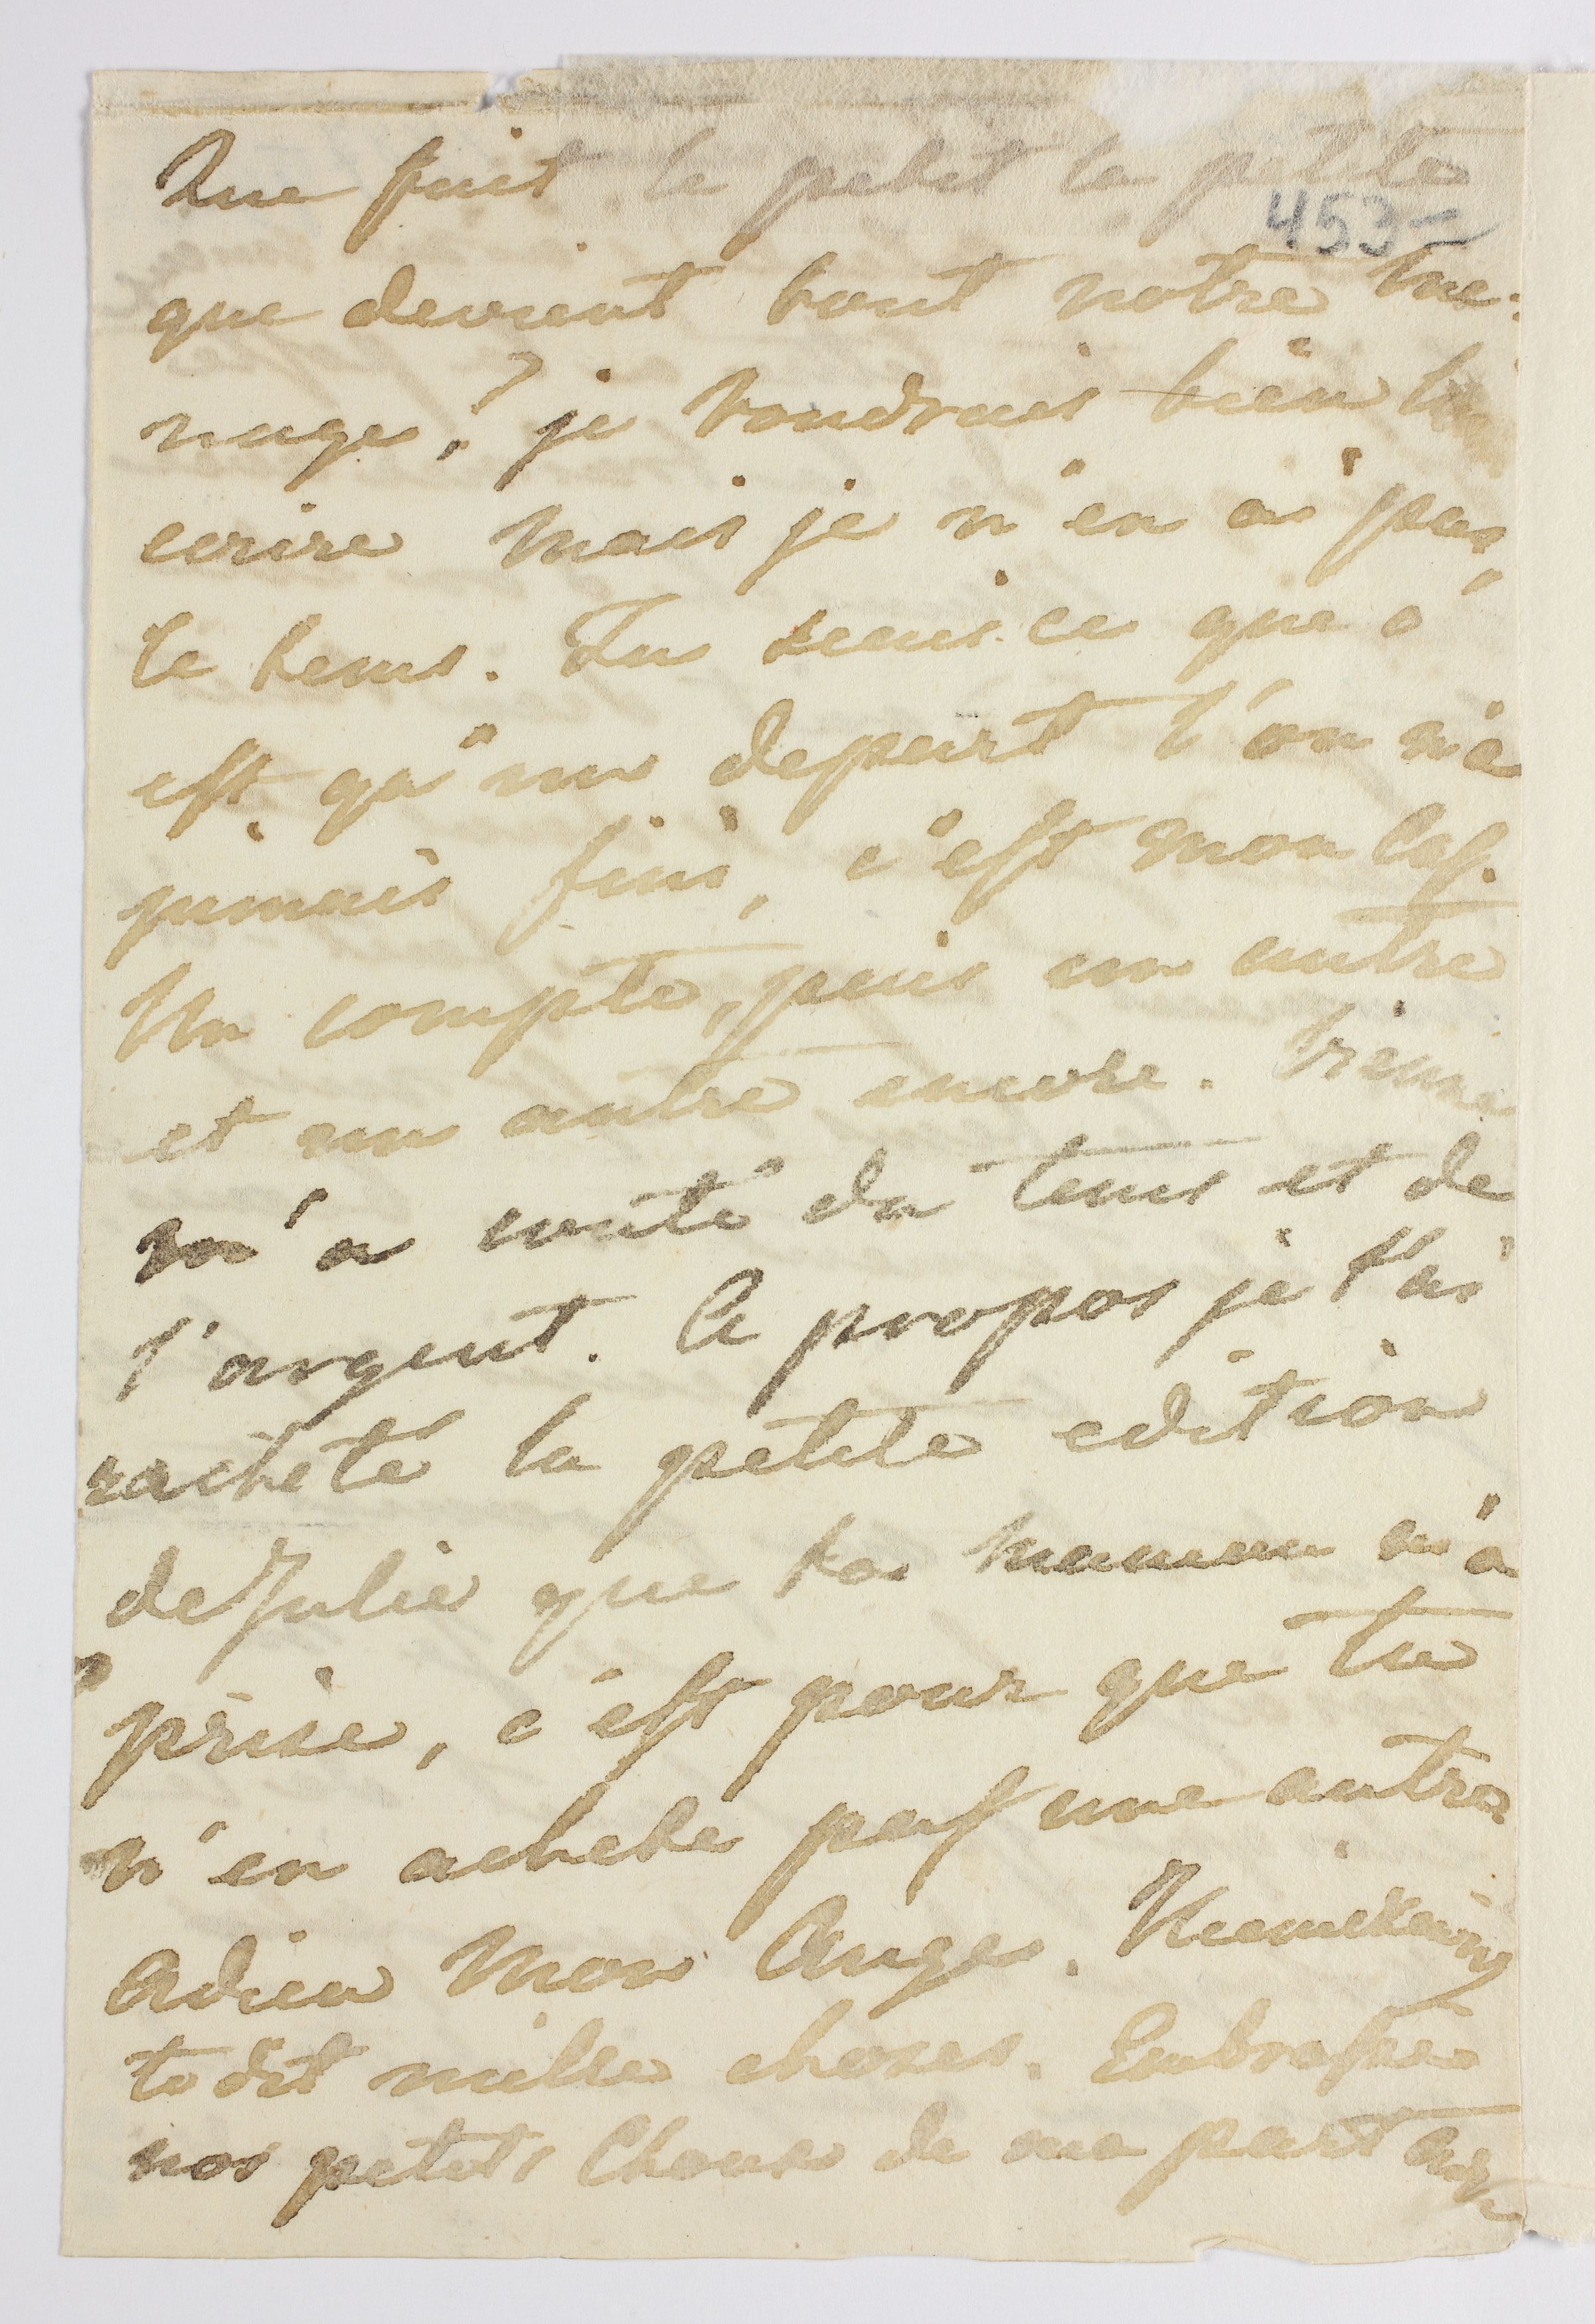 Que fait le petit la petite
453
que devient tout notre me-
nage? je voudrais bien leur
ecrire mais je n'en ai pas
le tems. Tu scais ce que c'
est qu'un depart l'on n'a
jamais fini, c'est mon cas.
Un compte, puis un autre
et un autre encore.
m'a couté du tems et de
l'argent. A propos je t'ai
racheté la petite edition
de Julie que ta maman m'a
prise, c'est pour que tu
n'en achete pas une autre
Adieu mon Ange.
te dit mille choses. Embrasse
nos petits Choux de ma part